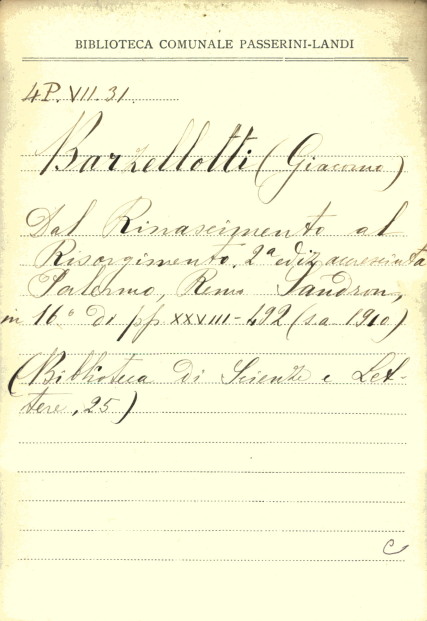 BIBLIOTECA COMUNALE PASSERINI-LANDI
4P. VII. 31.
Barzellotti (Giacomo)
Dal Rinascimento al
Risorgimento. 2ª ediz accresciuta
Palermo, Remo Sandron,
in 16° di pp XXVIII-492 (sa 1910)
(Biblioteca di Scienze e Let-
tere, 25)
C